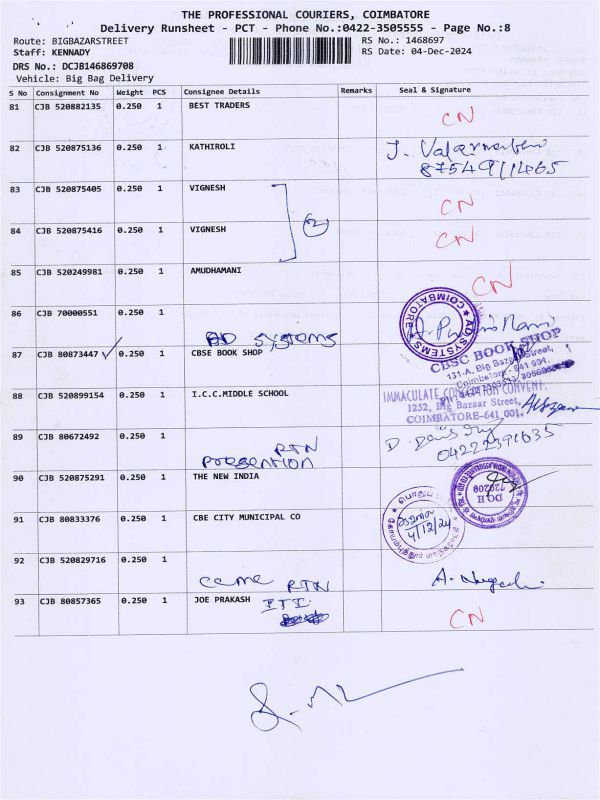 THE PROFESSIONAL COURIERS, COIMBATORE
Delivery Runsheet - PCT - Phone No.:0422-3505555 - Page No.:8
Route: BIGBAZARSTREET RS No.: 1468697
Staff: KENNADY RS Date: 04-Dec-2024
DRS No.: DCJB146869708
Vehicle: Big Bag Delivery
S No Consignment No Weight PCS Consignee Details Remarks Seal & Signature
81 CJB 520882135 0.250 1 BEST TRADERS
CN
82 CJB 520875136 0.250 1 KATHIROLI
83 CJB 520875405 0.250 1 VIGNESH
CN
2
84 CJB 520875416 0.250 1 VIGNESH
CN
85 CJB 520249981 0.250 1 AMUDHAMANI
CN
86 CJB 70000551 0.250 1
AD SYSTEMS
AD SYSTEMS COIMBATORE
87 CJB 80873447 0.250 1 CBSE BOOK SHOP
CBSC BOOK SHOP
131-A, Big Bazaar Street,
Coimbatore - 641 001.
88 CJB 520899154 0.250 1 I.C.C.MIDDLE SCHOOL
IMMACULATE CONCEPTION CONVENT
1252, Big Bazaar Street,
COIMBATORE-641 001.
89 CJB 80672492 0.250 1
RTN
04222391635
90 CJB 520875291 0.250 1 THE NEW INDIA
91 CJB 80833376 0.250 1 CBE CITY MUNICIPAL CO
4/12/24
92 CJB 520829716 0.250 1
came RTN
93 CJB 80857365 0.250 1 JOE PRAKASH
CN